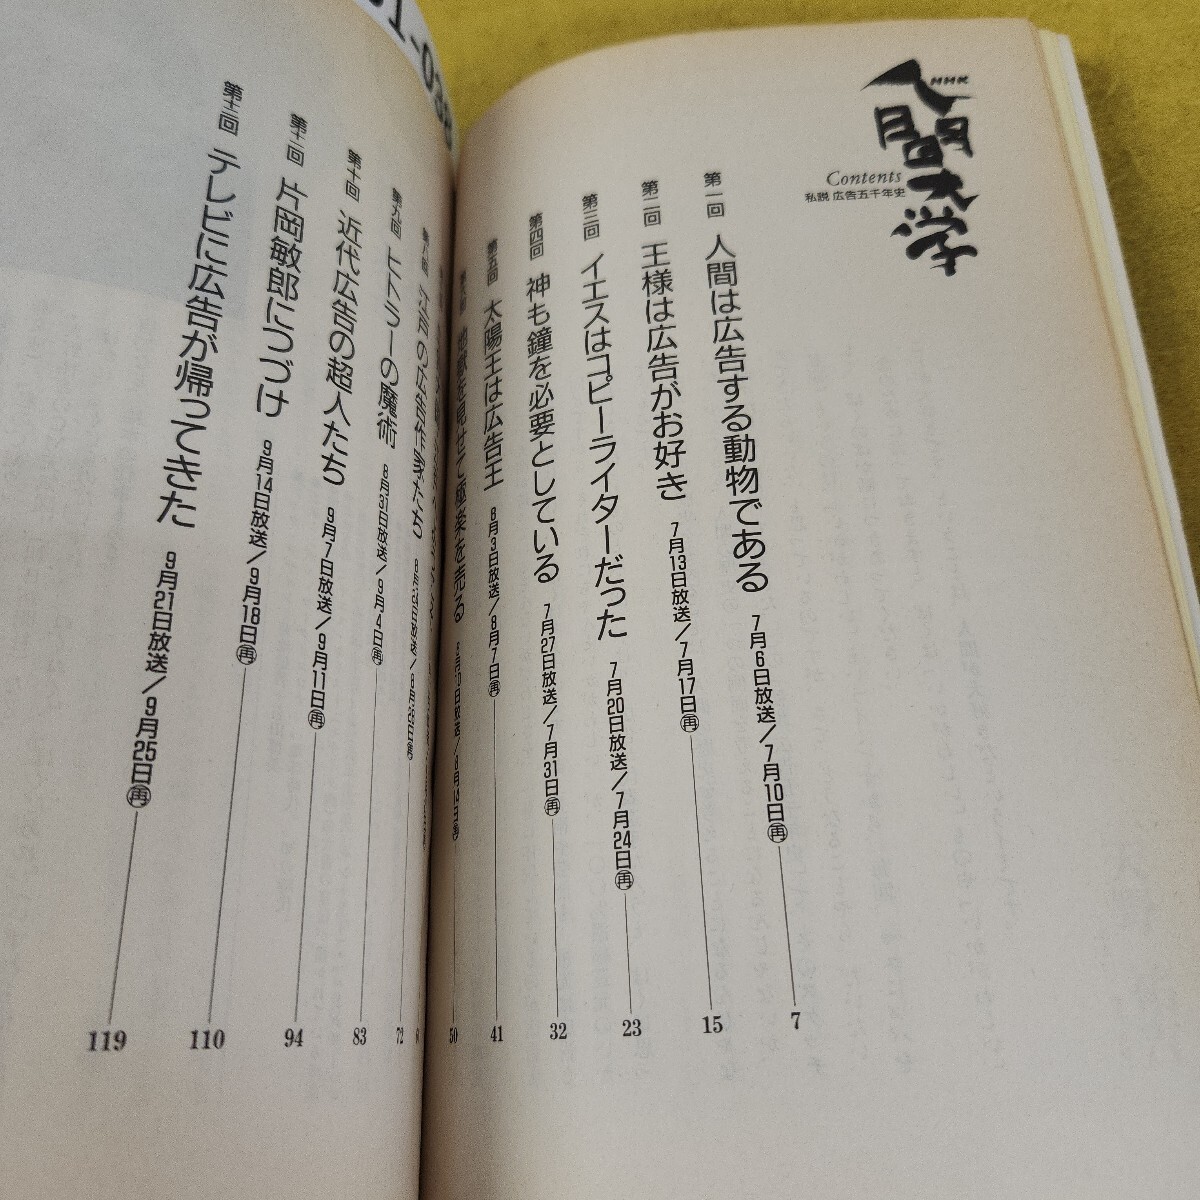 NHK
人間大学
Contents
私説 広告五千年史
第一回 人間は広告する動物である 7月6日放送/7月10日㊥ 7
第二回 王様は広告がお好き 7月13日放送/7月17日 再 15
第三回 イエスはコピーライターだった 7月20日放送/7月24日 再 23
第四回 神も鐘を必要としている 7月27日放送/7月31日 再 32
第五回 太陽王は広告王 8月3日放送/8月7日 再 41
地獄を見せて極楽を売る 50
江戸の広告作家たち 72
第九回 ヒトラーの魔術 8月31日放送/9月4日 再 83
第十回 近代広告の超人たち 9月7日放送/9月11日 再 94
第十一回 片岡敏郎につづけ 9月14日放送/9月18日 再 110
第十二回 テレビに広告が帰ってきた 9月21日放送/9月25日 再 119